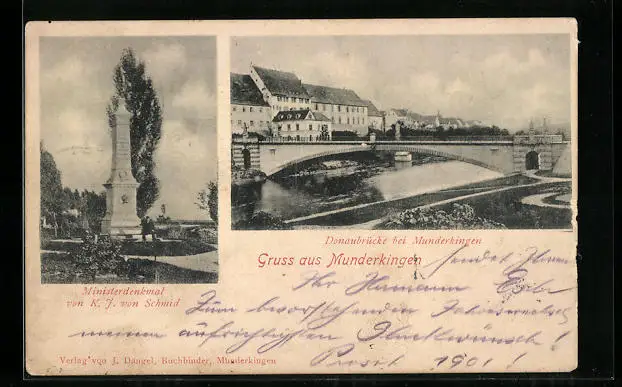 Donaubrücke bei Munderkingen
Gruss aus Munderkingen
Ministerdenkmal
von K. J. von Schmid
sendet Ihnen
Ihr Hermann
Zum bevorstehenden Jahreswechsel
meinen aufrichtigsten Glückwünsch!
Prosit 1901!
Verlag von J. Dangel, Buchbinder, Munderkingen